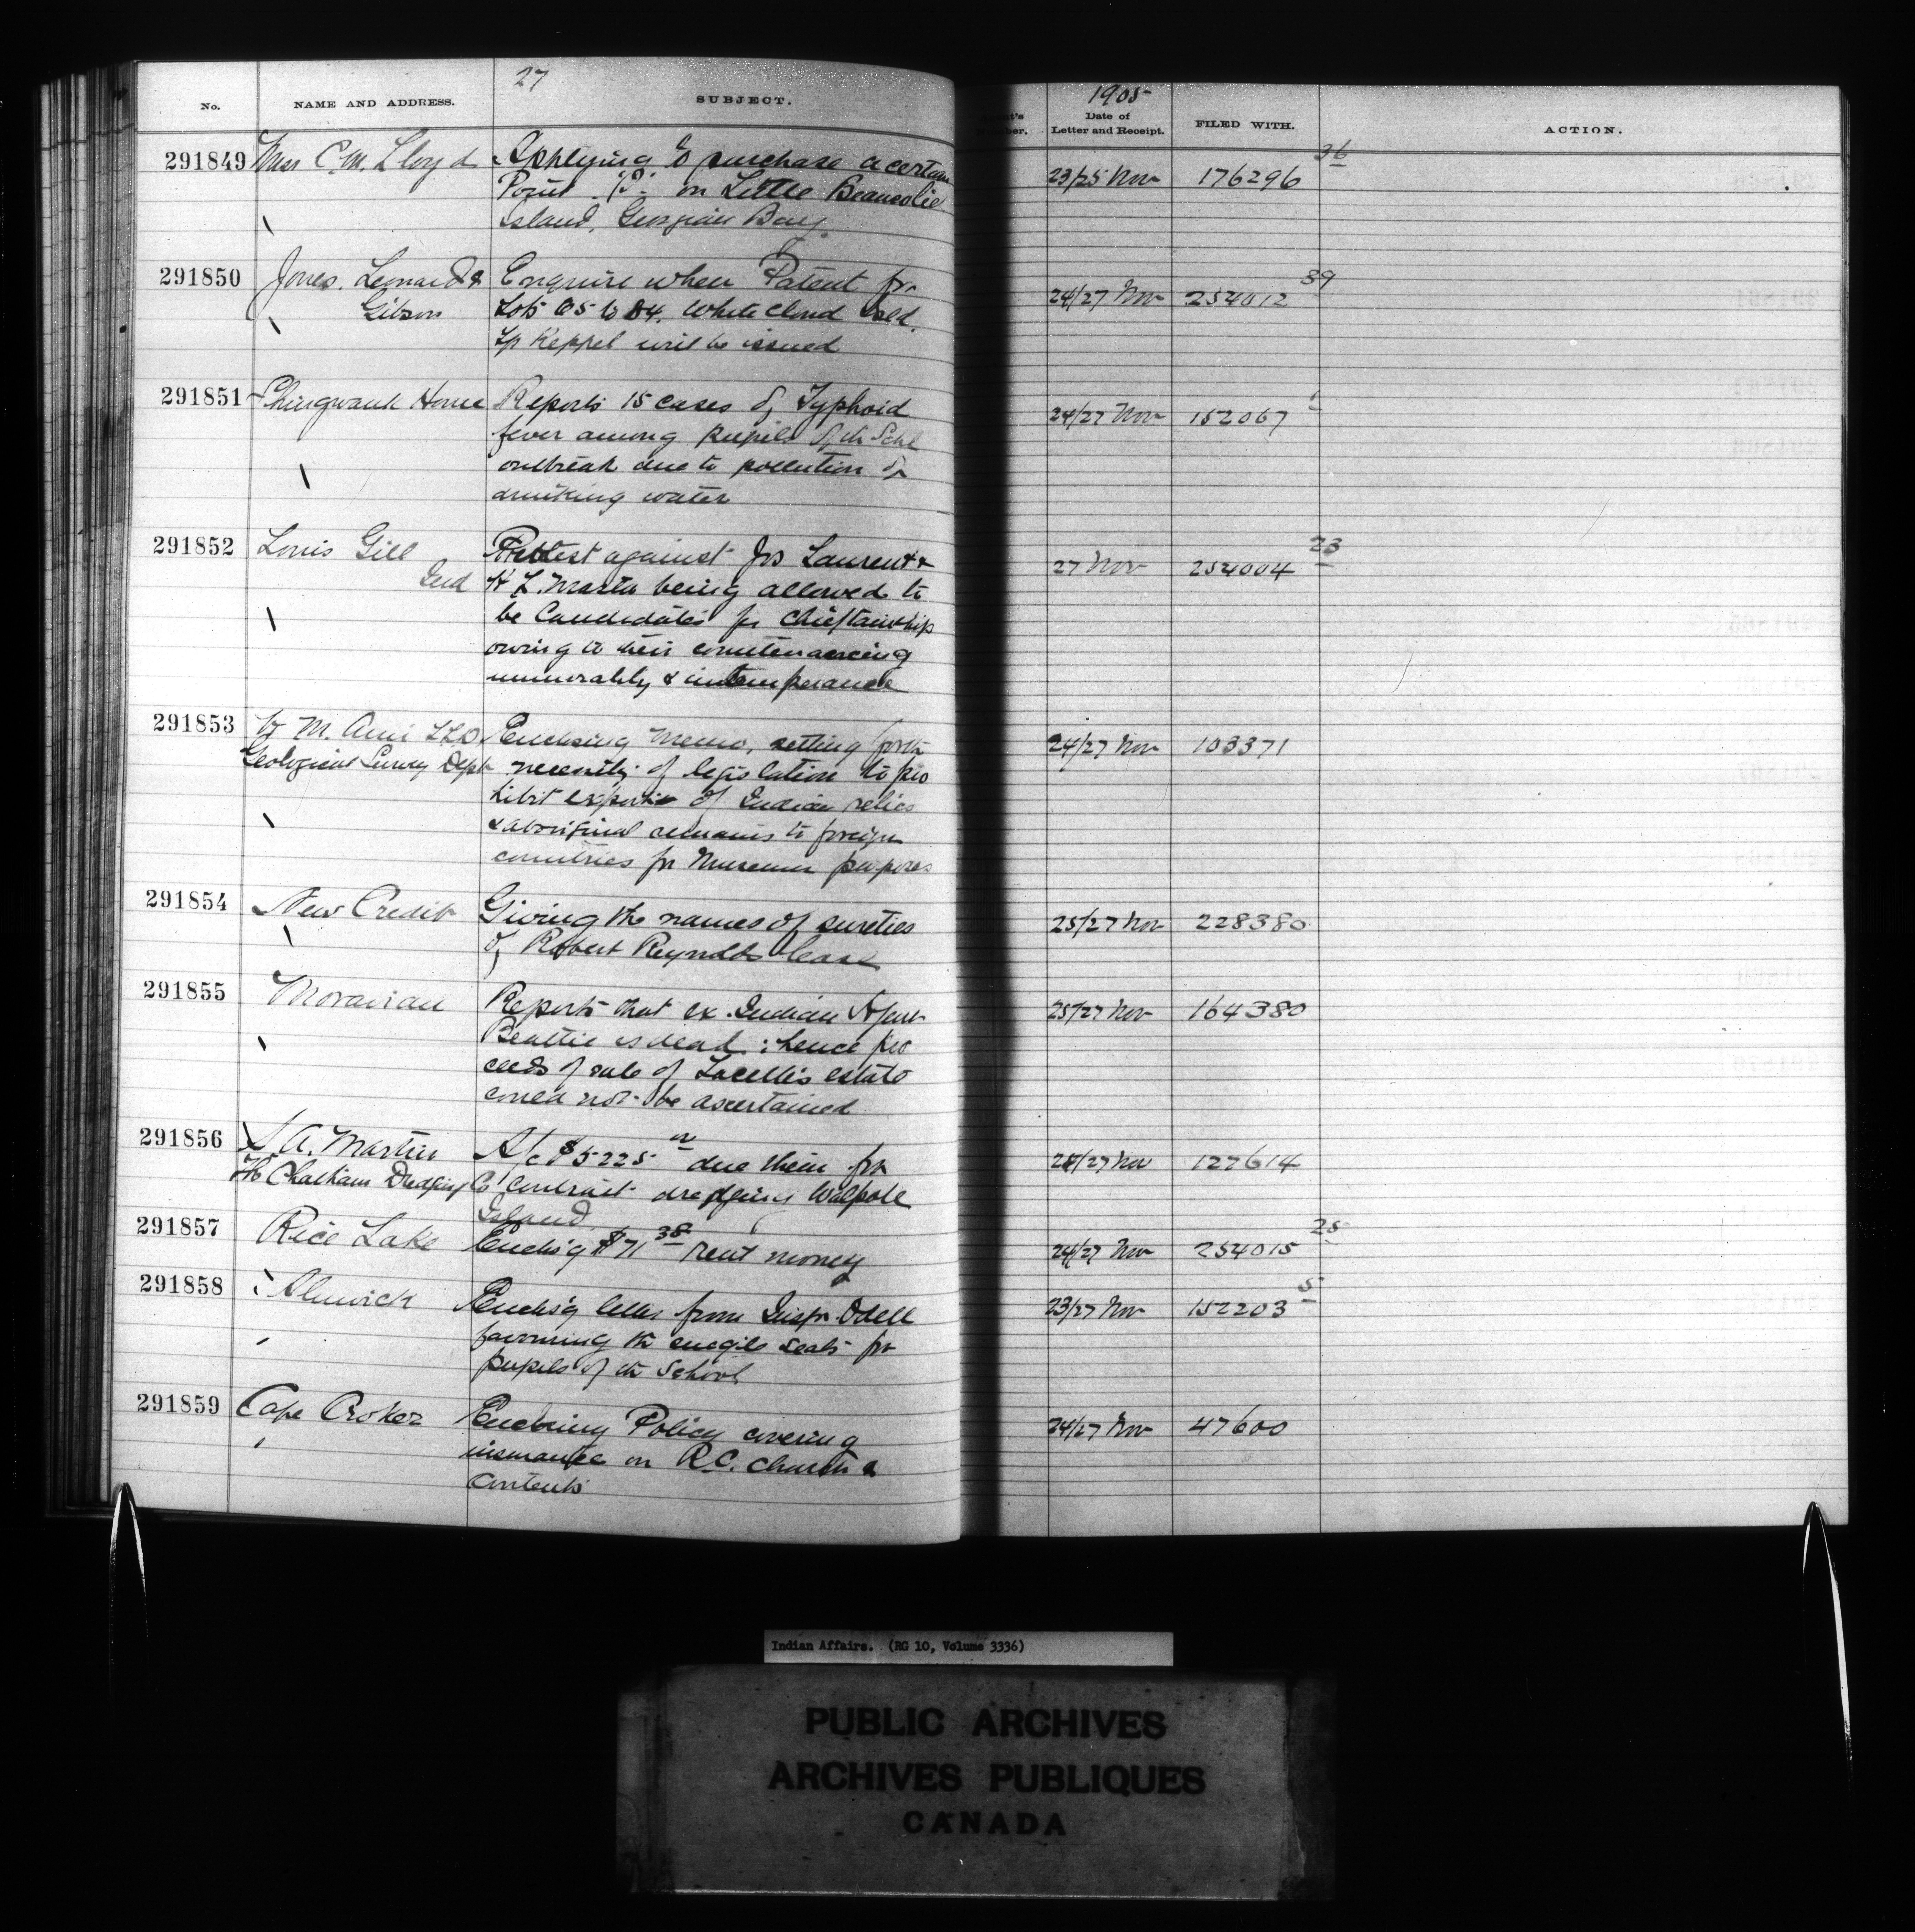 27
No. NAME AND ADDRESS. SUBJECT.
1905
Date of
Letter and Receipt. FILED WITH. ACTION.
291849 Miss C. M. Lloyd Applying to purchase a certain 23/25 Nov 176296 36
Point "B" on Little Beausolie
Island, Georgian Bay.
291850 Jones, Leonard & Enquire when Patent for 24/27 Nov 254012 39
Gibson Lots 65 to 84. White Cloud Isld.
Tp Keppel will be issued
291851 Shingwauk Home Reports 15 cases of Typhoid 24/27 Nov 152067 1
fever among pupils of th Schl
outbreak due to pollution of
drinking water
291852 Louis Gill Protest against Jos Laurent & 27 Nov 254004 23
Ind H L. Masta being allowed to
be Candidates for Chieftainship
owing to their countenancing
immorality & intemperance
291853 H M. Ami LLD Enclosing Memo, setting forth 24/27 Nov 103371
Geological Survey Dept necessity of legislation to pro
hibit export of Indian relics
& aboriginal remains to foreign
countries for Museum purposes
291854 New Credit Giving the names of sureties 25/27 Nov 228380
of Robert Reynolds lease
291855 Moravian Reports that ex. Indian Agent 25/27 Nov 164380
Beattie is dead; hence pro
ceeds of sale of estate
could not be ascertained
291856 S. A. Martin A/c $5225 due them for 127614
Th Chatham Dredging Co contract dredging Walpole
Island
291857 Rice Lake Encls'g $71 38 rent money 24/27 Nov 254015 25
291858 Alnwick Encls'g letter from Inspr Odell 23/27 Nov 152203 5
favouring th single seats for
pupils of th School
291859 Cape Croker Enclosing Policy covering 24/27 Nov 47600
insurance on R.C. Church &
contents
Indian Affairs. (RG 10, Volume 3336)
PUBLIC ARCHIVES
ARCHIVES PUBLIQUES
CANADA